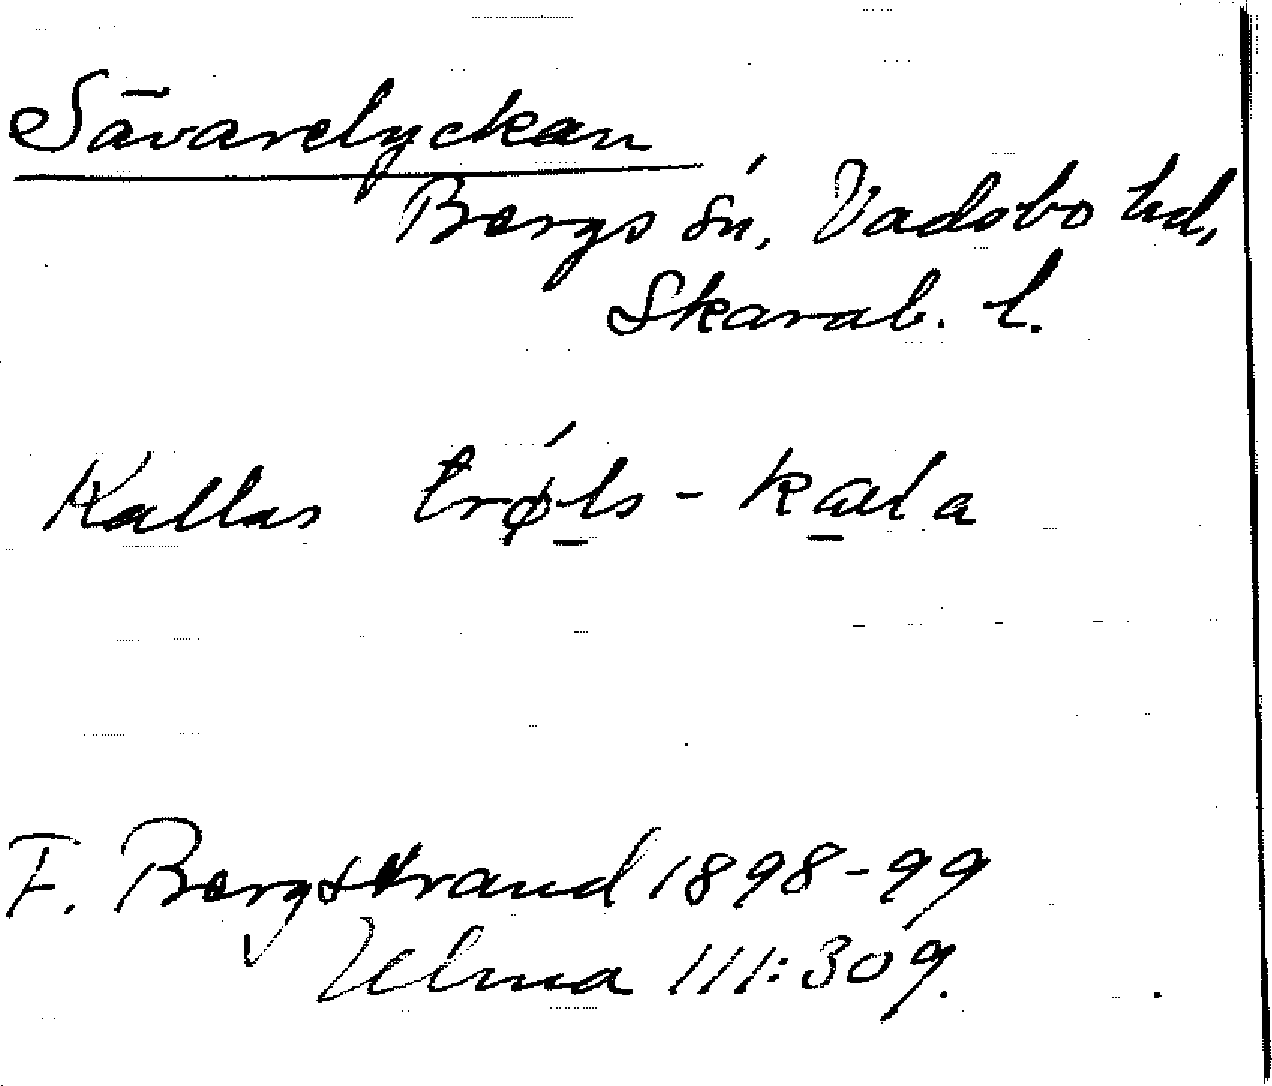 Sävarelyckan
Bergs sn, Vadsbo hd,
Skarab. l.
Kallas trø̀ls-kala
F. Bergstrand 1898-99
Ulma 111:309.